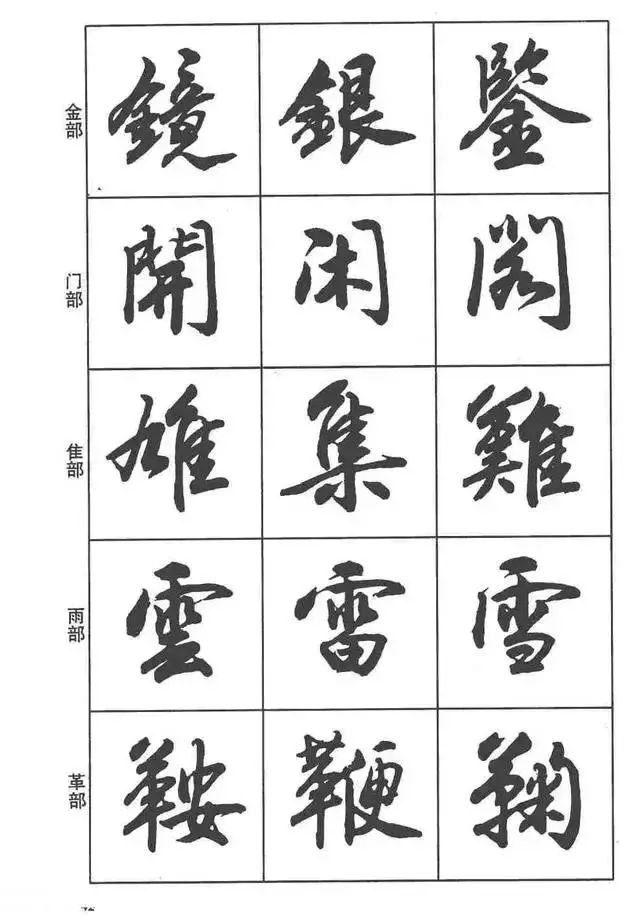 金部 鏡 銀 鋻
门部 開 闲 阁
隹部 雄 集 難
雨部 雲 雷 雪
革部 鞍 鞭 鞠